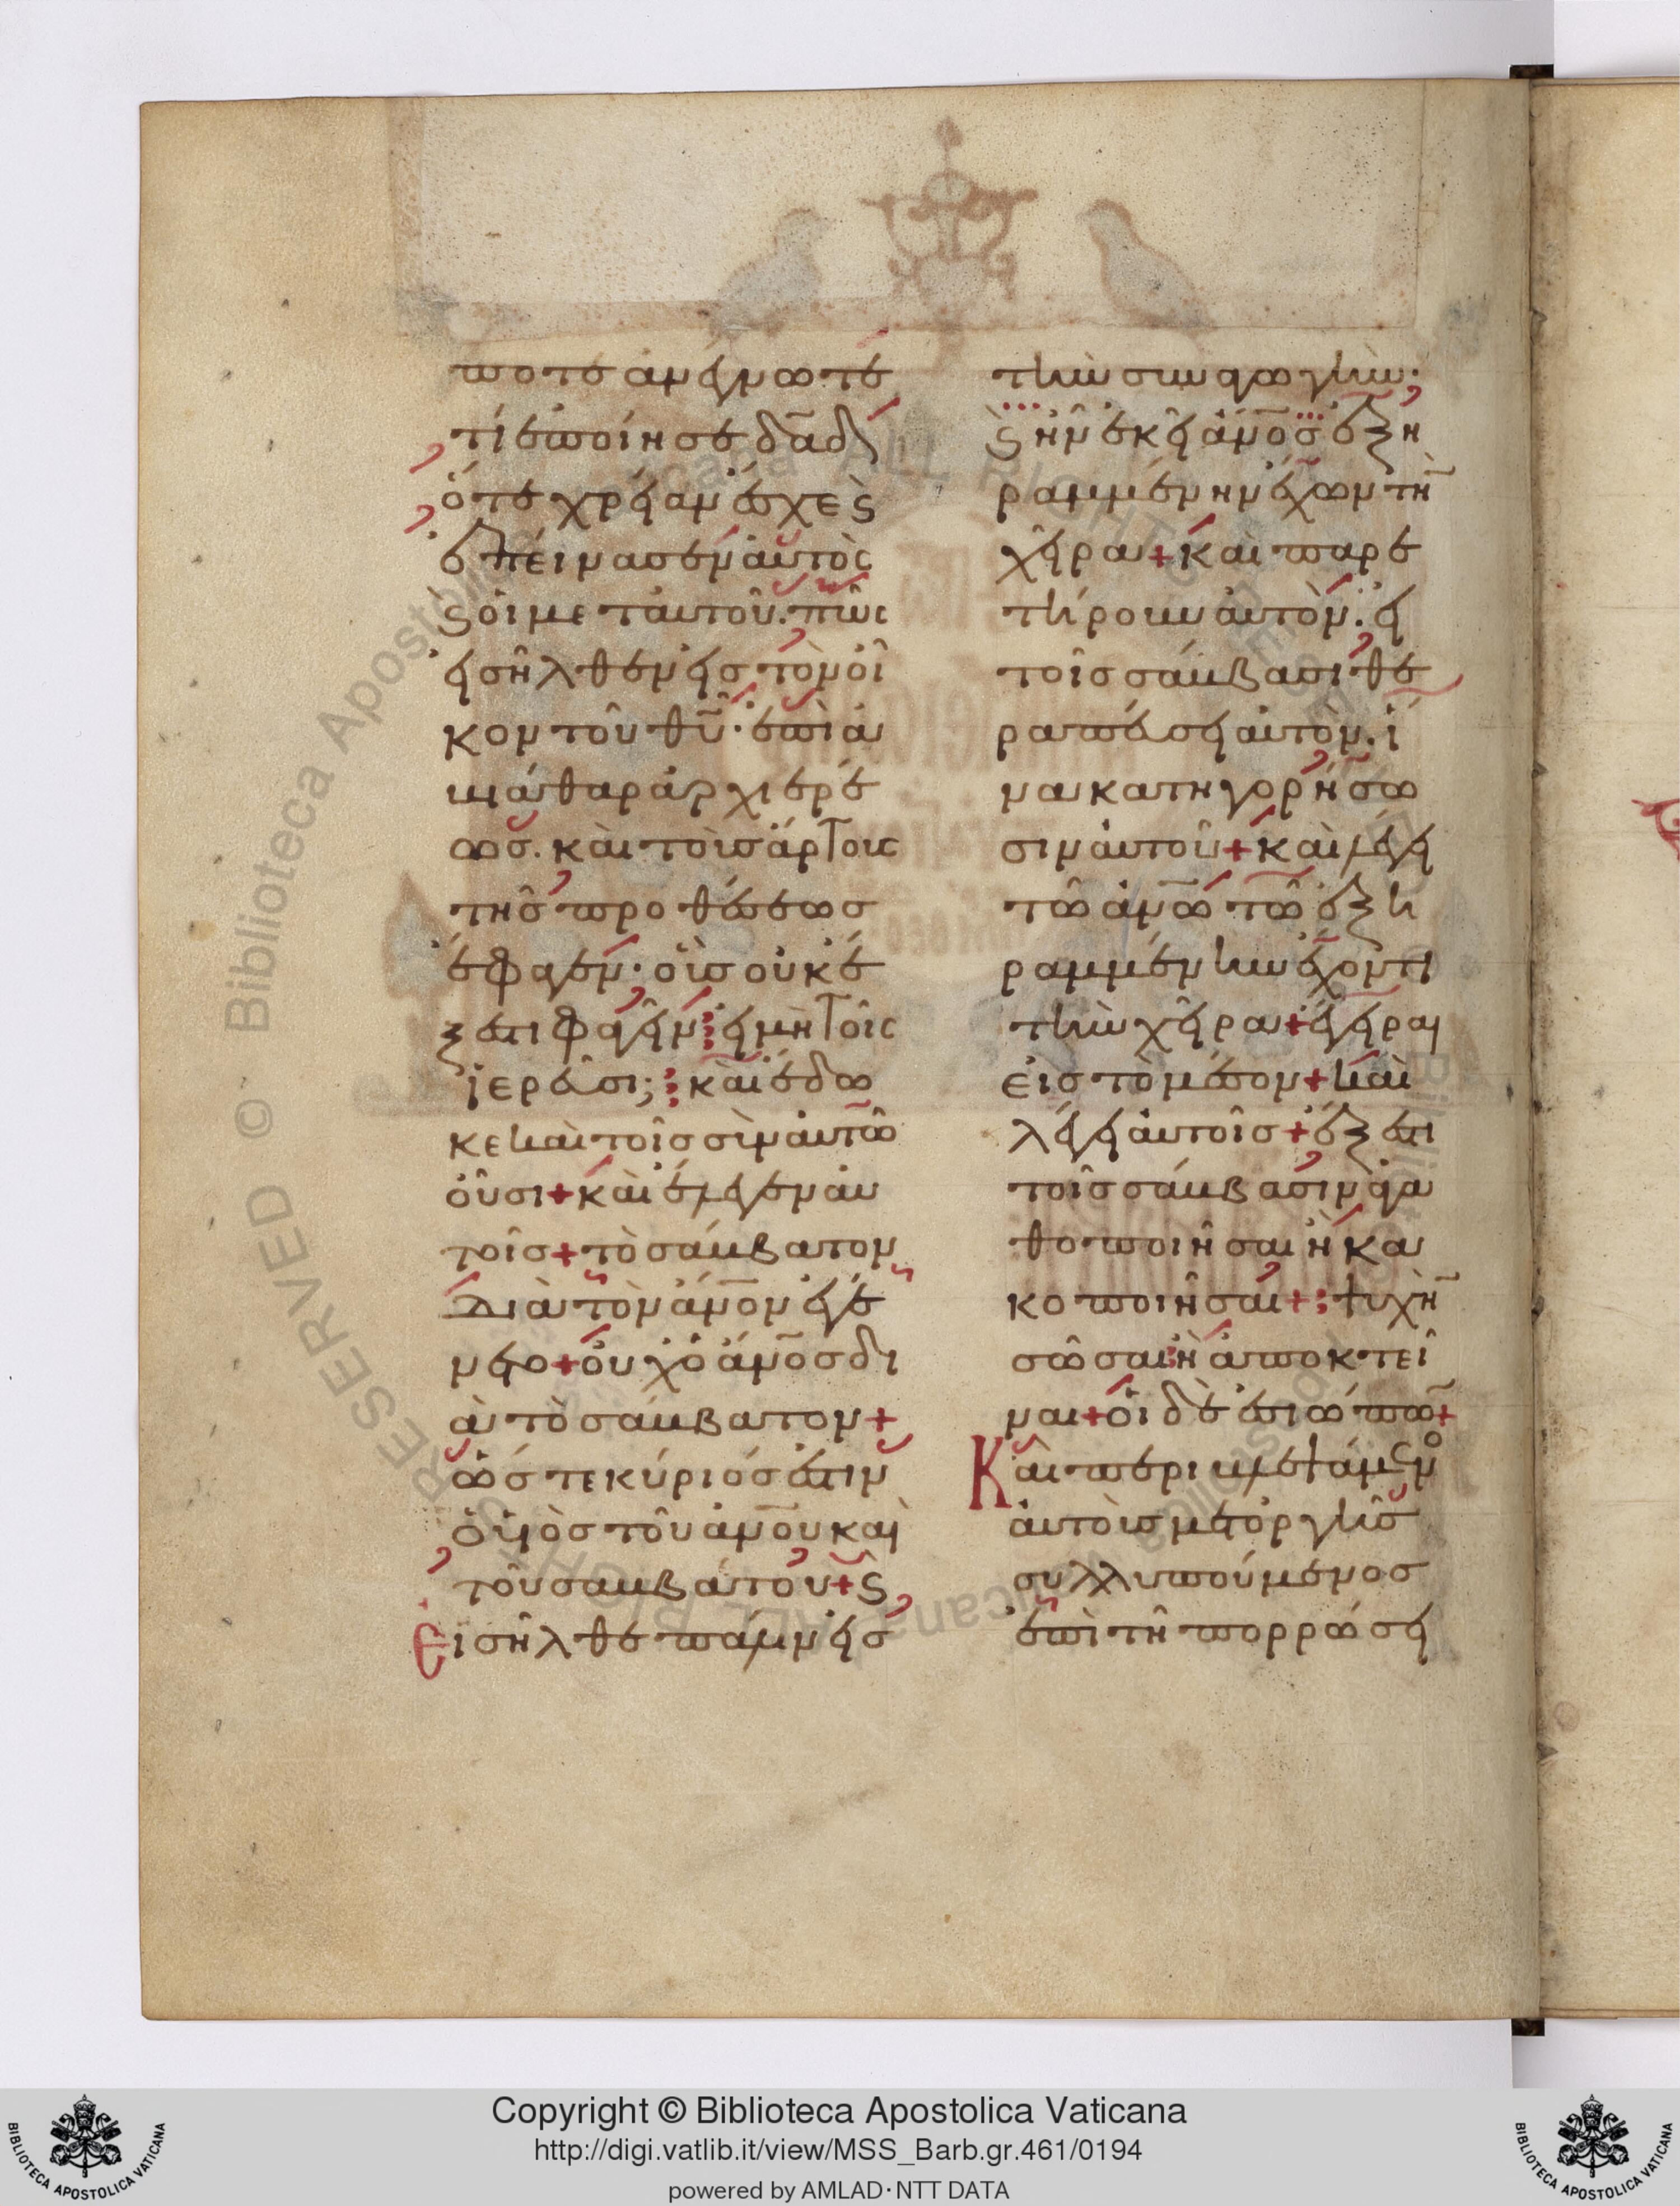 ποτε ἀνέγνωτε
τί ἐποίησε δ̅α̅δ
ὅτε χρείαν ἔσχε ϗ
ἐπείνασεν αὐτὸς
ϗ οἱ μετ αὐτοῦ. πῶς
εἰσῆλθεν εἰς τὸν οἶ
κον τοῦ θ̅υ̅· ἐπὶ ἀ
βιάθαρ ἀρχιερέ
ως. καὶ τοὺς ἄρτους
τῆς προθέσεως
ἔφαγεν· οὓς οὐκ ἔ
ξεστι φαγεῖν εἰ μὴ τοῖς
ἱερεῦσι; καὶ ἔδω
κε καὶ τοῖς σὺν αὐτῶ
οὖσι + καὶ ἔλεγεν αὐ
τοῖς + τὸ σάββατον
διὰ τὸν ἄν̅ο̅ν ἐγέ
νετο + οὐχ ὁ ἄν̅ο̅ς δι
ὰ τὸ σάββατον +
ὥστε κύριός ἐστιν
ὁ υἱὸς τοῦ ἀν̅ο̅υ καὶ
τοῦ σαββάτου + ϗ
Εἰσῆλθε πάλιν εἰς
τὴν συναγωγήν·
ϗ ἦν ἐκεῖ ἄν̅ο̅ς ἐξη
ραμμένην ἔχων τὴ̅
χεῖρα + καὶ παρε
τήρουν αὐτὸν. εἰ
τοῖς σάββασι θε
ραπεύσει αὐτὸν. ἵ
να κατηγορήσω
σιν αὐτοῦ + καὶ λέγει
τῶ ἀν̅ω̅ τῶ ἐξη
ραμμένην ἔχοντι
τὴν χεῖρα + ἔγειραι
εἰς τὸ μέσον + καὶ
λέγει αὐτοῖς + ἔξεστι
τοῖς σάββασιν ἀγα
θοποιῆσαι ἢ κα
κοποιῆσαι + ψυχὴ̅
σῶσαι ἢ ἀποκτεῖ
ναι + οἱ δὲ ἐσιώπω̅ +
Καὶ περιβλεψάμενο
αὐτοὺς μετ ὀργῆς
συλλυπούμενος
ἐπὶ τῆ πορρώσει
Copyright © Biblioteca Apostolica Vaticana
http://digi.vatlib.it/view/MSS_Barb.gr.461/0194
powered by AMLAD·NTT DATA